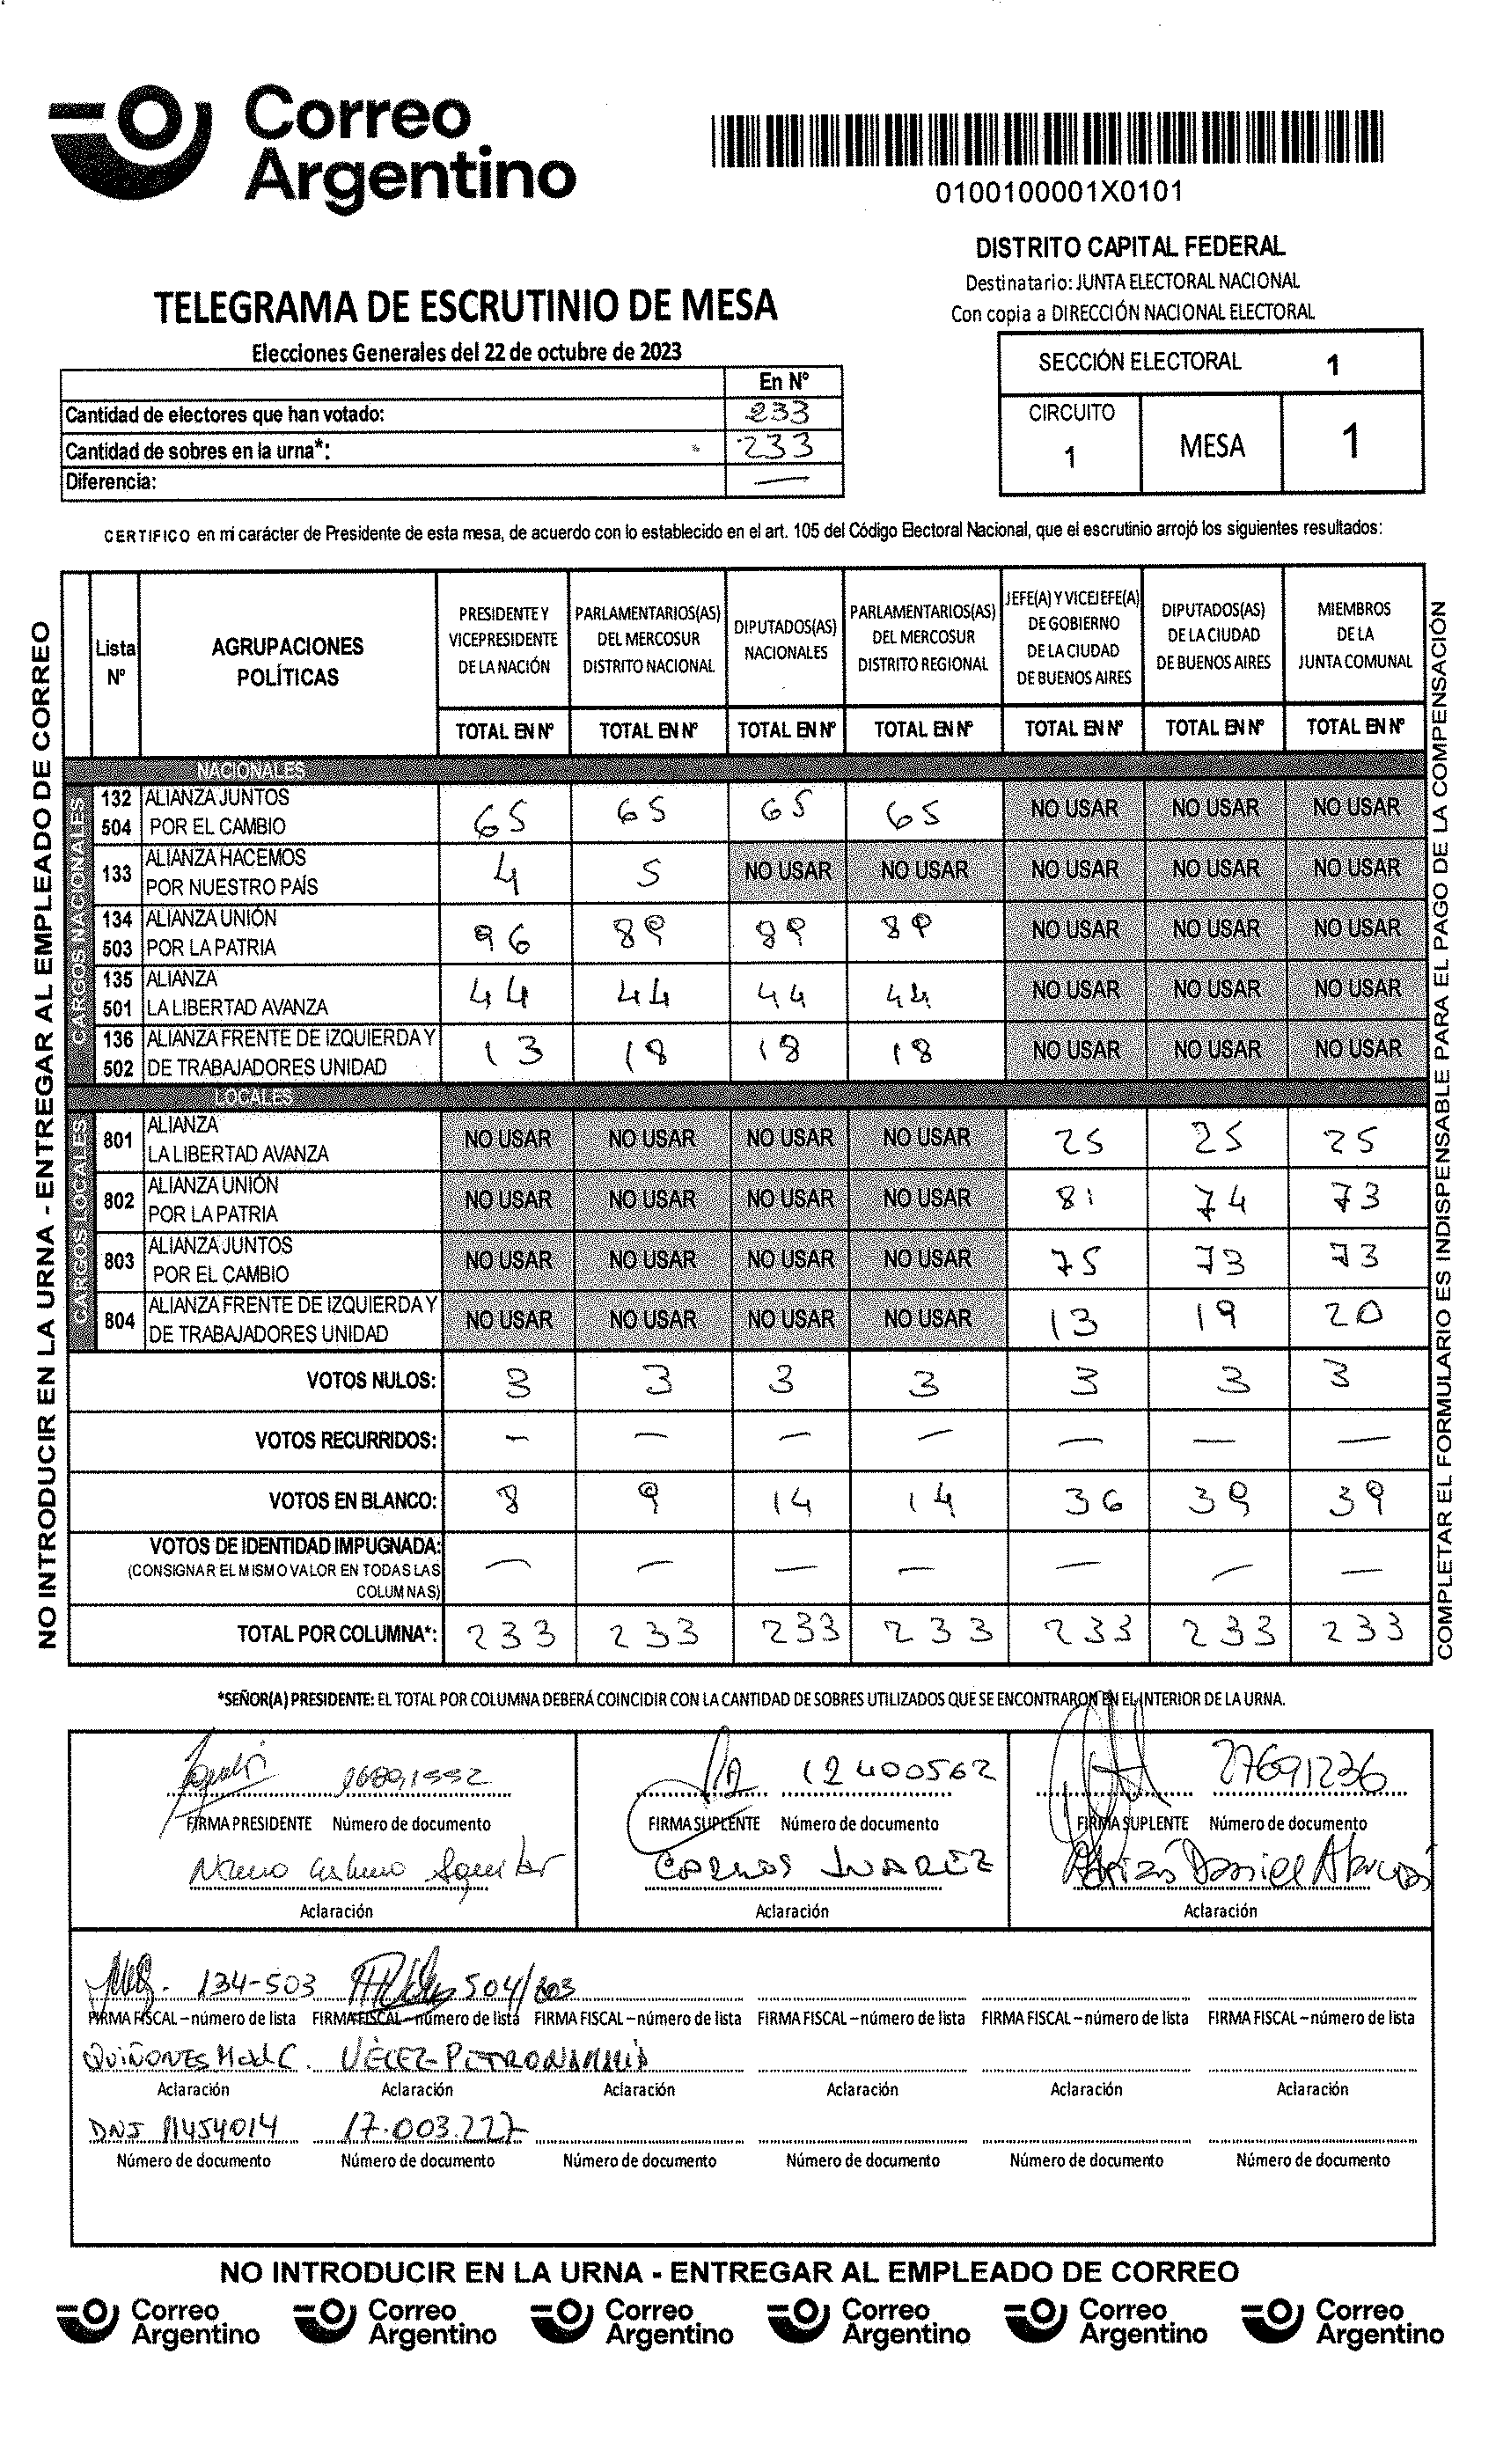 Correo
Argentino
0100100001X0101
DISTRITO CAPITAL FEDERAL
Destinatario: JUNTA ELECTORAL NACIONAL
Con copia a DIRECCIÓN NACIONAL ELECTORAL
TELEGRAMA DE ESCRUTINIO DE MESA
Elecciones Generales del 22 de octubre de 2023
En Nº
Cantidad de electores que han votado: 233
Cantidad de sobres en la urna*: 233
Diferencia: —
SECCIÓN ELECTORAL 1
CIRCUITO
1
MESA 1
CERTIFICO en mi carácter de Presidente de esta mesa, de acuerdo con lo establecido en el art. 105 del Código Electoral Nacional, que el escrutinio arrojó los siguientes resultados:
NO INTRODUCIR EN LA URNA - ENTREGAR AL EMPLEADO DE CORREO
COMPLETAR EL FORMULARIO ES INDISPENSABLE PARA EL PAGO DE LA COMPENSACIÓN
Lista
Nº
AGRUPACIONES
POLÍTICAS
PRESIDENTE Y
VICEPRESIDENTE
DE LA NACIÓN
PARLAMENTARIOS(AS)
DEL MERCOSUR
DISTRITO NACIONAL
DIPUTADOS(AS)
NACIONALES
PARLAMENTARIOS(AS)
DEL MERCOSUR
DISTRITO REGIONAL
JEFE(A) Y VICEJEFE(A)
DE GOBIERNO
DE LA CIUDAD
DE BUENOS AIRES
DIPUTADOS(AS)
DE LA CIUDAD
DE BUENOS AIRES
MIEMBROS
DE LA
JUNTA COMUNAL
TOTAL EN Nº TOTAL EN Nº TOTAL EN Nº TOTAL EN Nº TOTAL EN Nº TOTAL EN Nº TOTAL EN Nº
NACIONALES
CARGOS NACIONALES
132 ALIANZA JUNTOS
504 POR EL CAMBIO
65 65 65 65 NO USAR NO USAR NO USAR
133
ALIANZA HACEMOS
POR NUESTRO PAÍS
4 5 NO USAR NO USAR NO USAR NO USAR NO USAR
134 ALIANZA UNIÓN
503 POR LA PATRIA
96 89 89 89 NO USAR NO USAR NO USAR
135 ALIANZA
501 LA LIBERTAD AVANZA
44 44 44 44 NO USAR NO USAR NO USAR
136 ALIANZA FRENTE DE IZQUIERDA Y
502 DE TRABAJADORES UNIDAD
13 18 18 18 NO USAR NO USAR NO USAR
LOCALES
CARGOS LOCALES
801
ALIANZA
LA LIBERTAD AVANZA
NO USAR NO USAR NO USAR NO USAR 25 25 25
802
ALIANZA UNIÓN
POR LA PATRIA
NO USAR NO USAR NO USAR NO USAR 81 74 73
803
ALIANZA JUNTOS
POR EL CAMBIO
NO USAR NO USAR NO USAR NO USAR 75 73 73
804
ALIANZA FRENTE DE IZQUIERDA Y
DE TRABAJADORES UNIDAD
NO USAR NO USAR NO USAR NO USAR 13 19 20
VOTOS NULOS: 3 3 3 3 3 3 3
VOTOS RECURRIDOS: — — — — — — —
VOTOS EN BLANCO: 8 9 14 14 36 39 39
VOTOS DE IDENTIDAD IMPUGNADA: — — — — — — —
(CONSIGNAR EL MISMO VALOR EN TODAS LAS
COLUMNAS)
TOTAL POR COLUMNA*: 233 233 233 233 233 233 233
*SEÑOR(A) PRESIDENTE: EL TOTAL POR COLUMNA DEBERÁ COINCIDIR CON LA CANTIDAD DE SOBRES UTILIZADOS QUE SE ENCONTRARON EN EL INTERIOR DE LA URNA.
12400562
27691236
FIRMA PRESIDENTE Número de documento
FIRMA SUPLENTE Número de documento
FIRMA SUPLENTE Número de documento
CARLOS JUAREZ
Daniel
Aclaración Aclaración Aclaración
134-503 504/803
FIRMA FISCAL – número de lista FIRMA FISCAL – número de lista FIRMA FISCAL – número de lista FIRMA FISCAL – número de lista FIRMA FISCAL – número de lista FIRMA FISCAL – número de lista
QUIÑONES
Aclaración Aclaración Aclaración Aclaración Aclaración Aclaración
DNI 11454014 17.003.227
Número de documento Número de documento Número de documento Número de documento Número de documento Número de documento
NO INTRODUCIR EN LA URNA - ENTREGAR AL EMPLEADO DE CORREO
Correo Argentino Correo Argentino Correo Argentino Correo Argentino Correo Argentino Correo Argentino